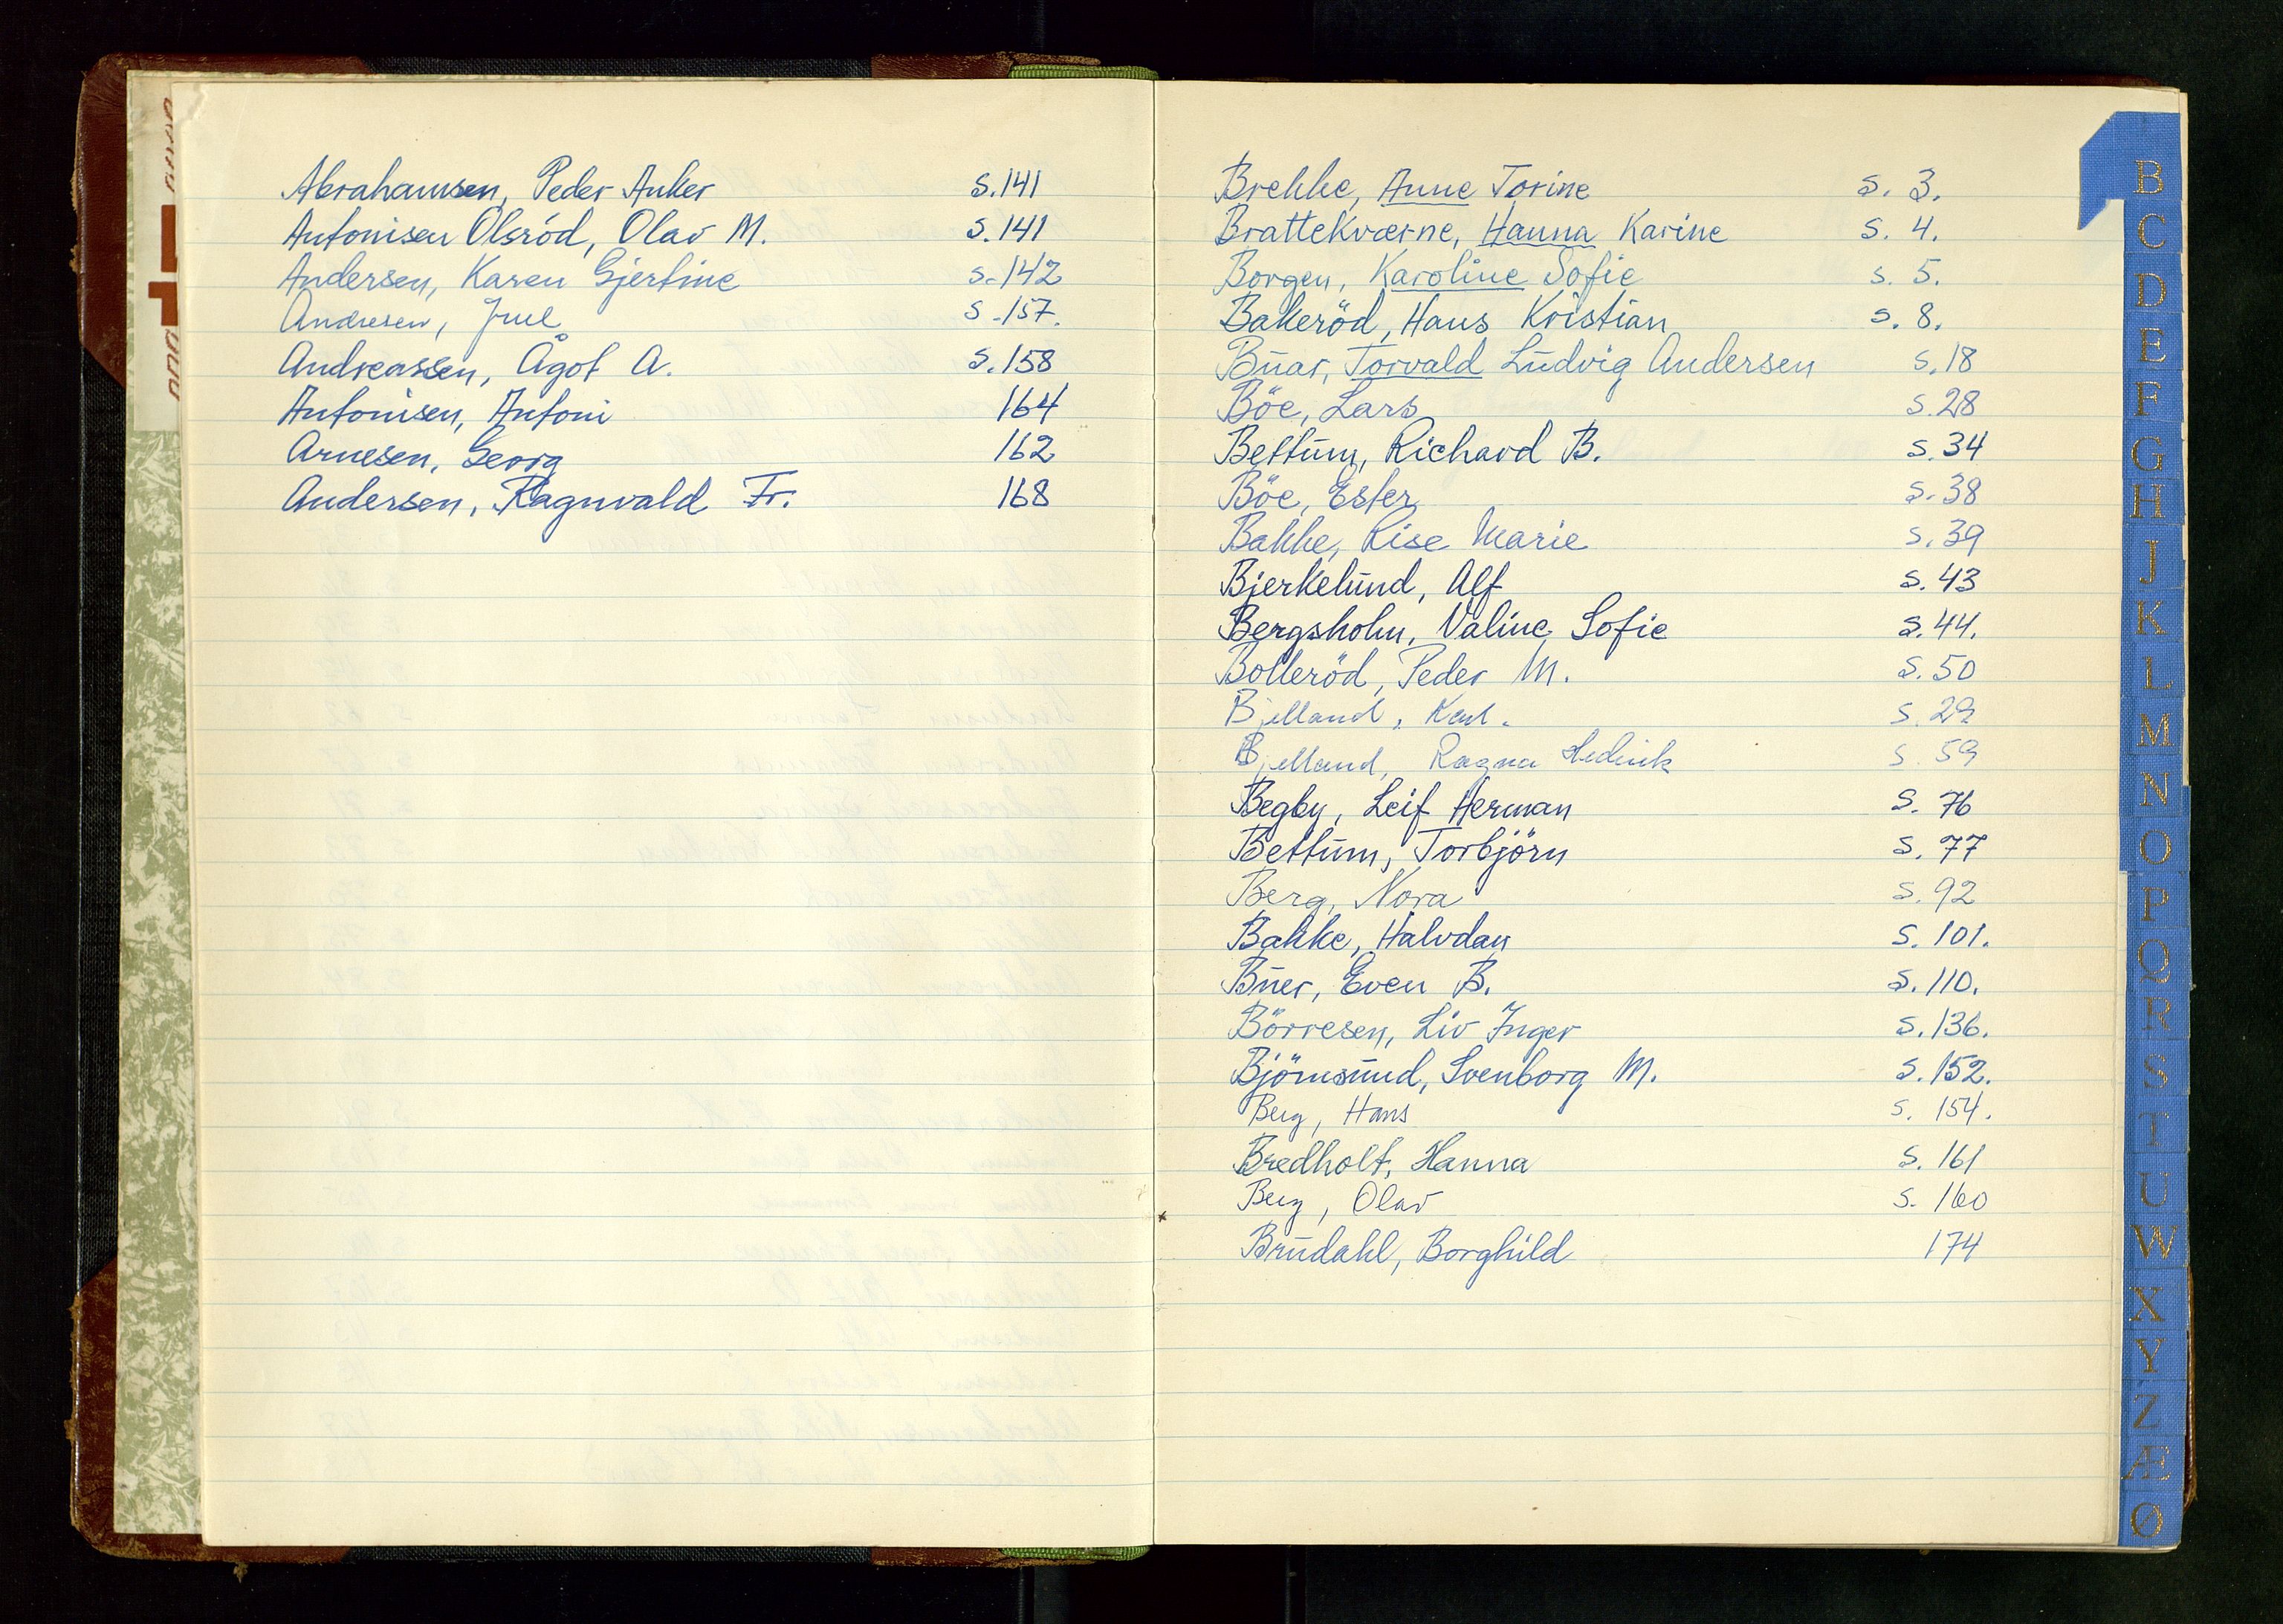 Abrahamsen, Peder Anker s. 141
Antonisen Olsröd, Olav M. s. 141
Andersen, Karen Gjertine s. 142
Andresen, Juul s. 157.
Andreassen, Ågot A. s. 158
Antonisen, Antoni 164
Arnesen, Georg 162
Andersen, Ragnvald Fr. 168
Brekke, Anne Torine s. 3.
Brattekværne, Hanna Karine s. 4.
Borgen, Karoline Sofie s. 5.
Bakeröd, Hans Kristian s. 8.
Buar, Torvald Ludvig Andersen s. 18
Böe, Lars s. 28
Bettum, Richard B. s. 34
Böe, Ester s. 38
Bakke, Lise Marie s. 39
Bjerkelund, Alf s. 43
Bergsholm, Valine Sofie s. 44.
Bolleröd, Peder M. s. 50
Bjelland, Karl. s. 29
Bjelland, Ragna s. 59
Begby, Leif Herman s. 76
Bettum, Torbjörn s. 77
Berg, Nora s. 92
Bakke, Halvdan s. 101.
Buer, Even B. s. 110.
Börresen, Liv Inger s. 136.
Björnsund, Svenborg M. s. 152.
Berg, Hans s. 154.
Bredholt, Hanna s. 161
Berg, Olav s. 160
Brudahl, Borghild 174
B
C
D
E
F
G
H
J
K
L
M
N
O
P
Q
R
S
T
U
W
X
Y
Z
Æ
Ø